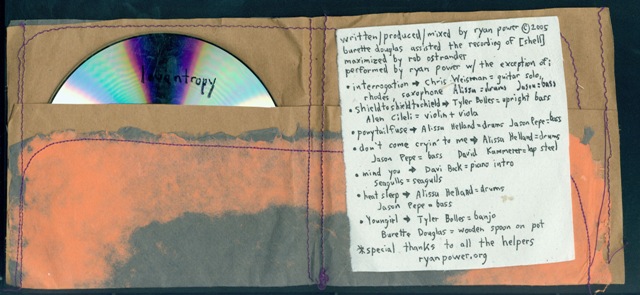 loventropy
written/produced/mixed by ryan power ©2005
burette douglas assisted the recording of [shell]
maximized by rob ostrander
performed by ryan power w/ the exception of:
• interrogation → Chris Weisman = guitar solo,
rhodes, saxophone Alissa = drums Jason = bass
• shieldtoshieldtoshield → Tyler Bolles = upright bass
Alon Cileli = violin + viola
• ponytailfuse → Alissa Helland = drums Jason Pepe = bass
• don't come cryin' to me → Alissa Helland = drums
Jason Pepe = bass David Kammerer = lap steel
• mind you → Davi Bock = piano intro
Seagulls = seagulls
• heat sleep → Alissa Helland = drums
Jason Pepe = bass
• Youngirl → Tyler Bolles = banjo
Burette Douglas = wooden spoon on pot
* special thanks to all the helpers
ryanpower.org